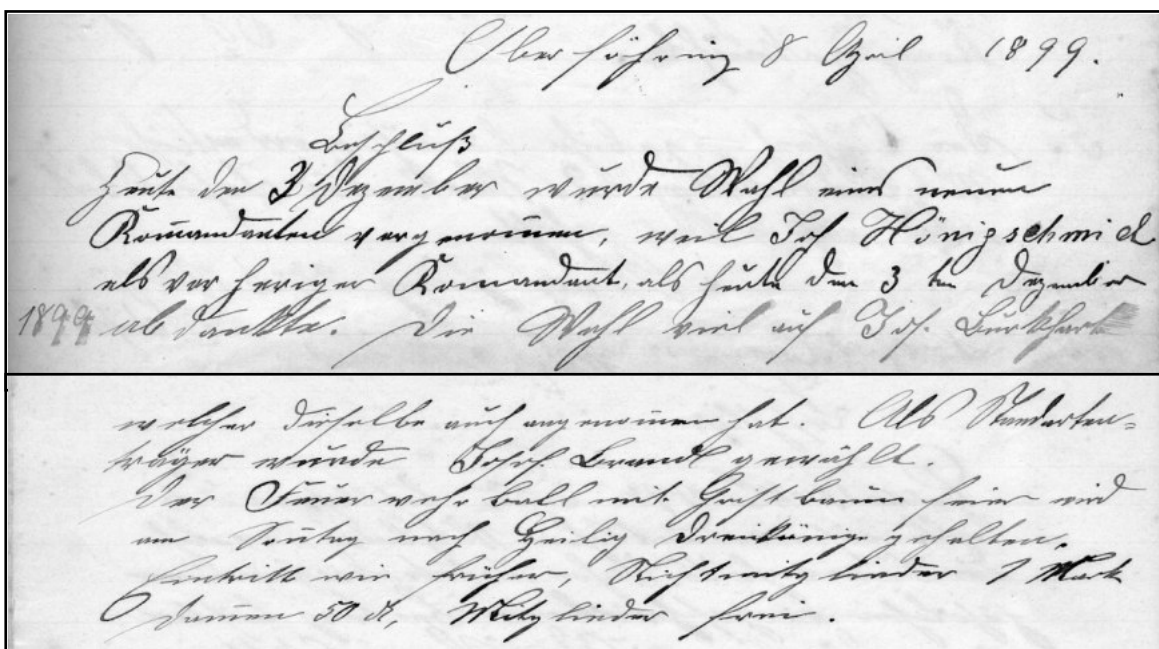 Oberföhring 8 April 1899.
Beschluß
Heute den 3 Dezember wurde Wahl eines neuen
Komandanten vorgenomen, weil Jos Hönigschmid
als vorheriger Komandant, als heute den 3ten Dezember
1899 abdankte. Die Wahl viel auf Jos. Burkhart
welcher dieselbe auch angenomen hat. Als Standarten=
träger wurde Joseph Brandl gewählt.
Der Feuerwehrball mit Gristbaum feier wird
am Sontag nach Heilig Dreikönige gehalten.
Eintritt wie früher, Nichtmitglieder 1 Mark
Damen 50 ₰, Mitglieder frei.